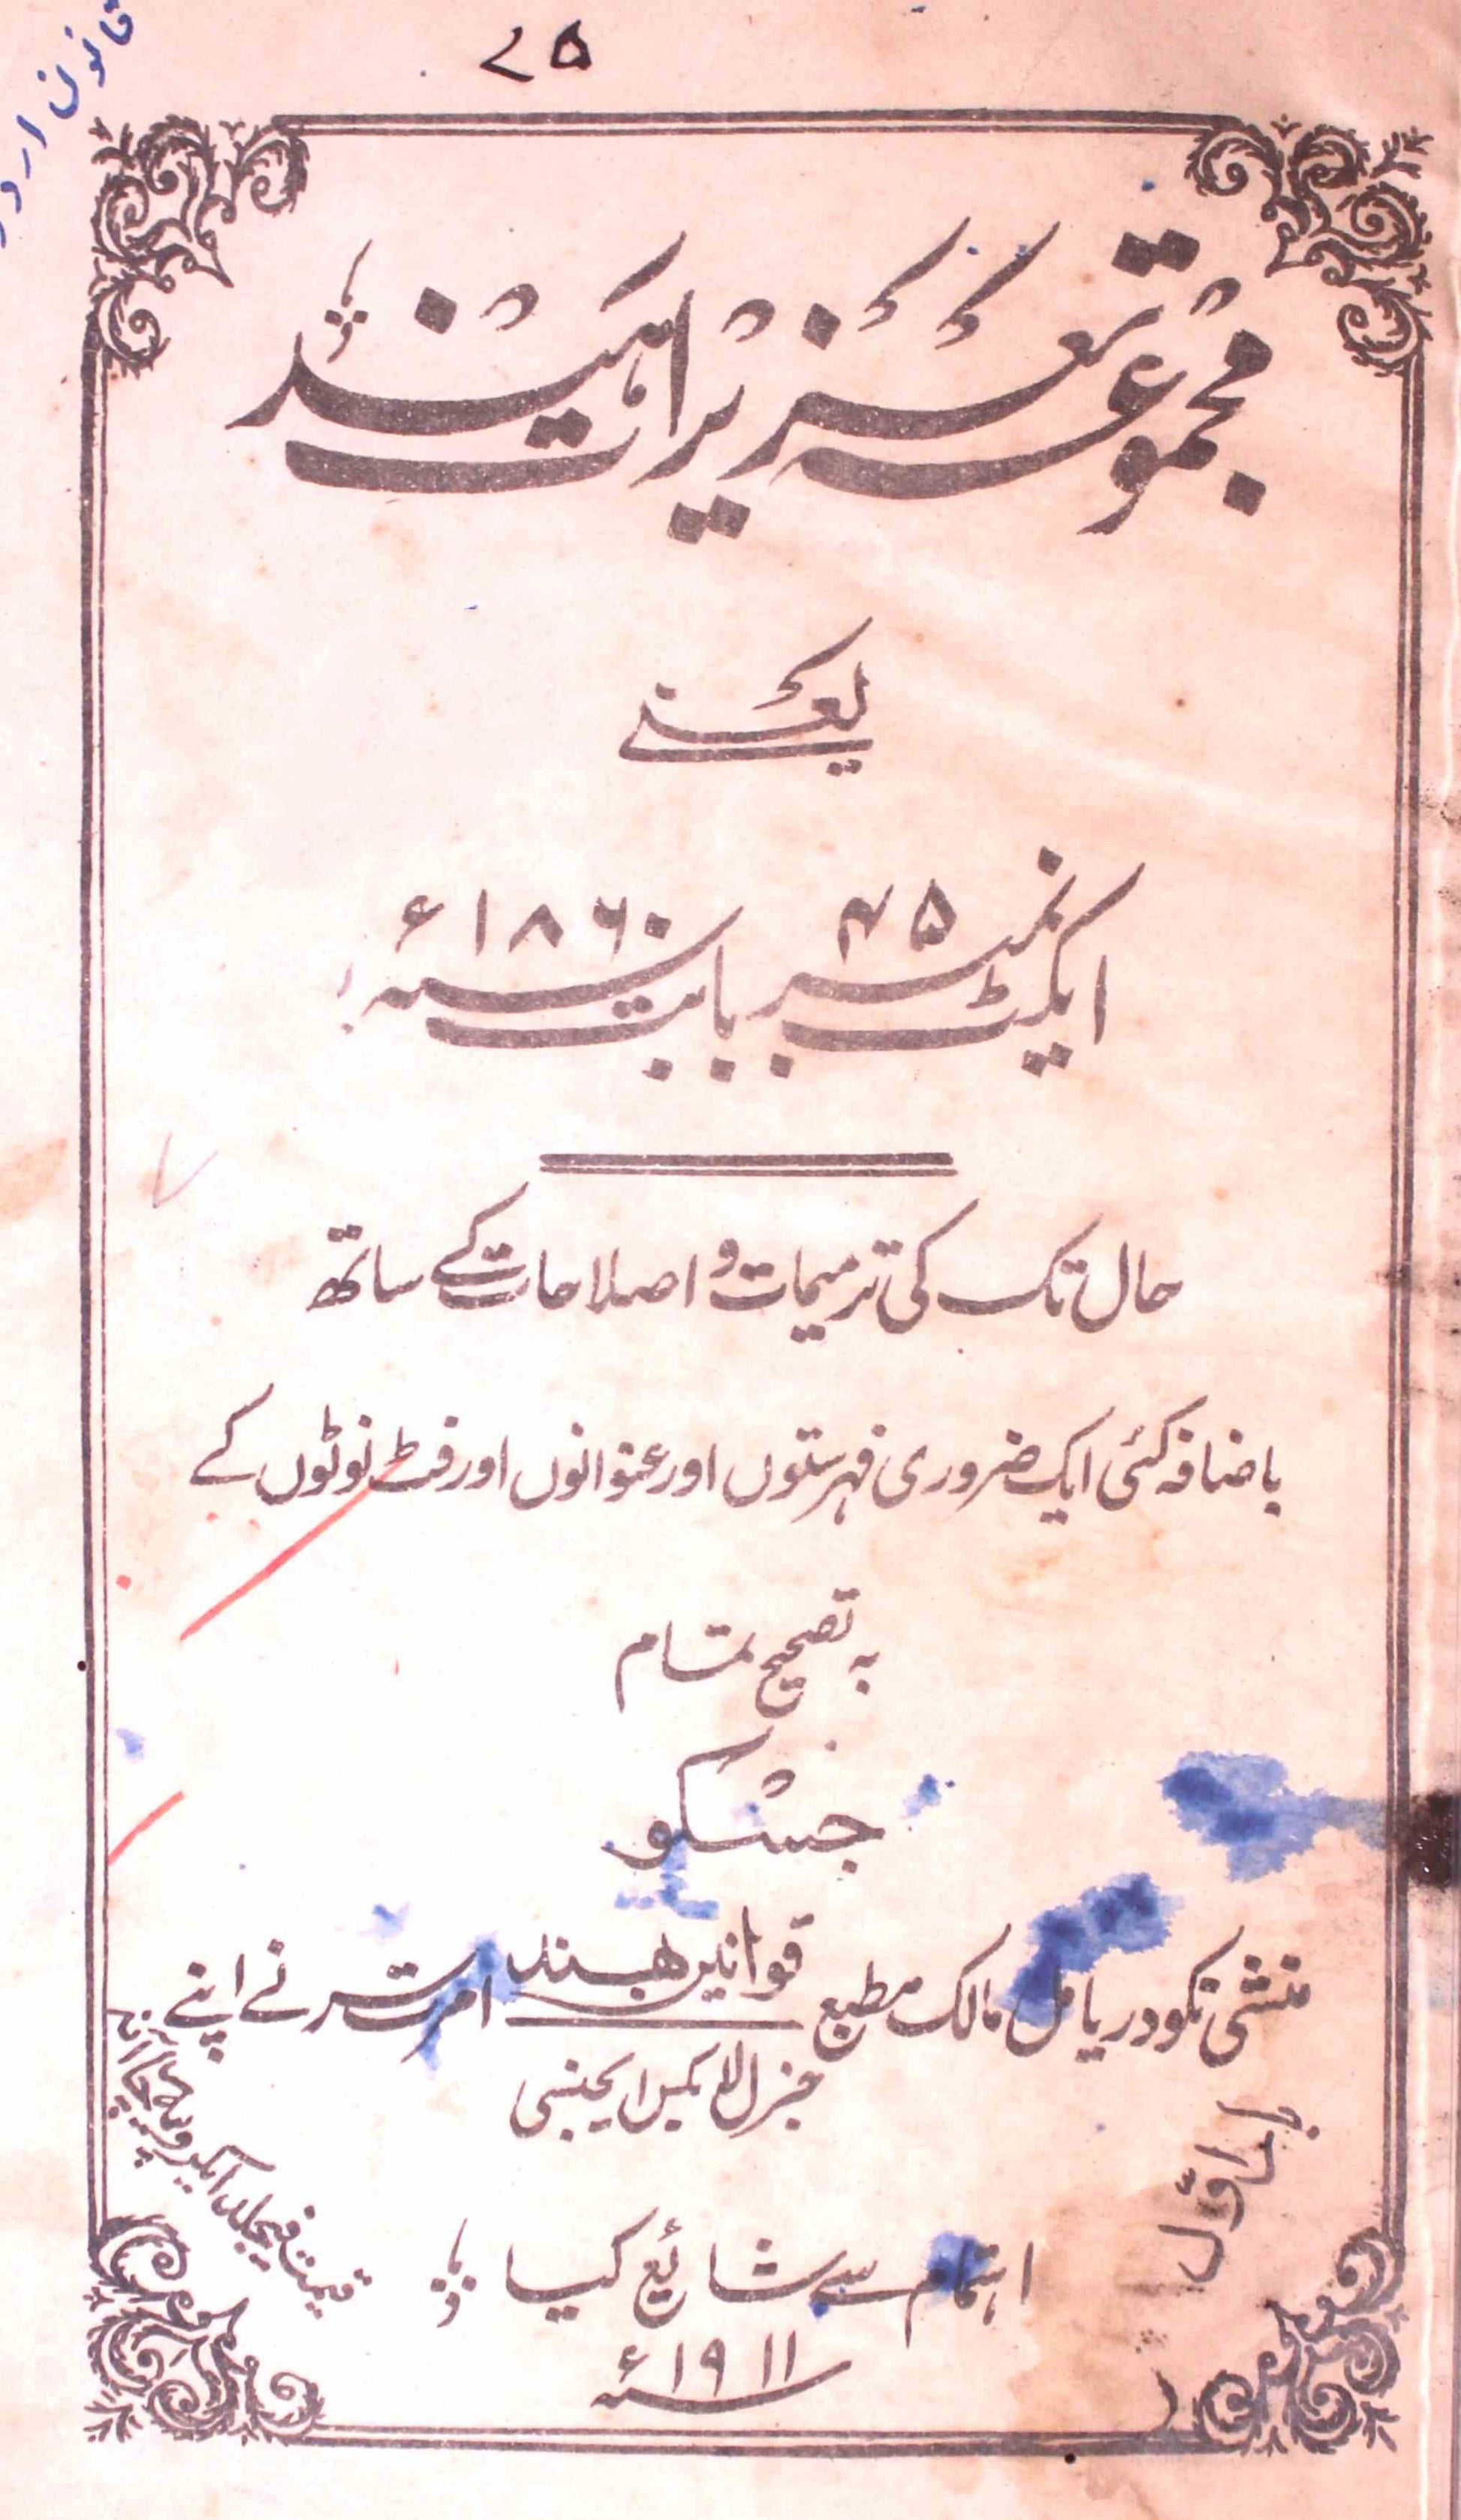 ۷۵
قانون اردو
مجموعہ تعزیرات ہند
یعنے
ایکٹ نمبر ۴۵ بابت سنہ ۱۸۶۰ء
حال تک کی ترمیمات و اصلاحات کے ساتھ
باضافہ کئی ایک ضروری فہرستوں اور عنوانوں اور فٹ نوٹوں کے
بہ تصحیح تمام
جسکو
منشی نکودریا مل مالک مطبع قوانین ہند امرتسر نے اپنے
جنرل لا بکس ایجنسی
اہتمام سے شائع کیا
سنہ ۱۹۱۱ء
بار اوّل
قیمت فیجلد ایکروپیہ چار آنہ